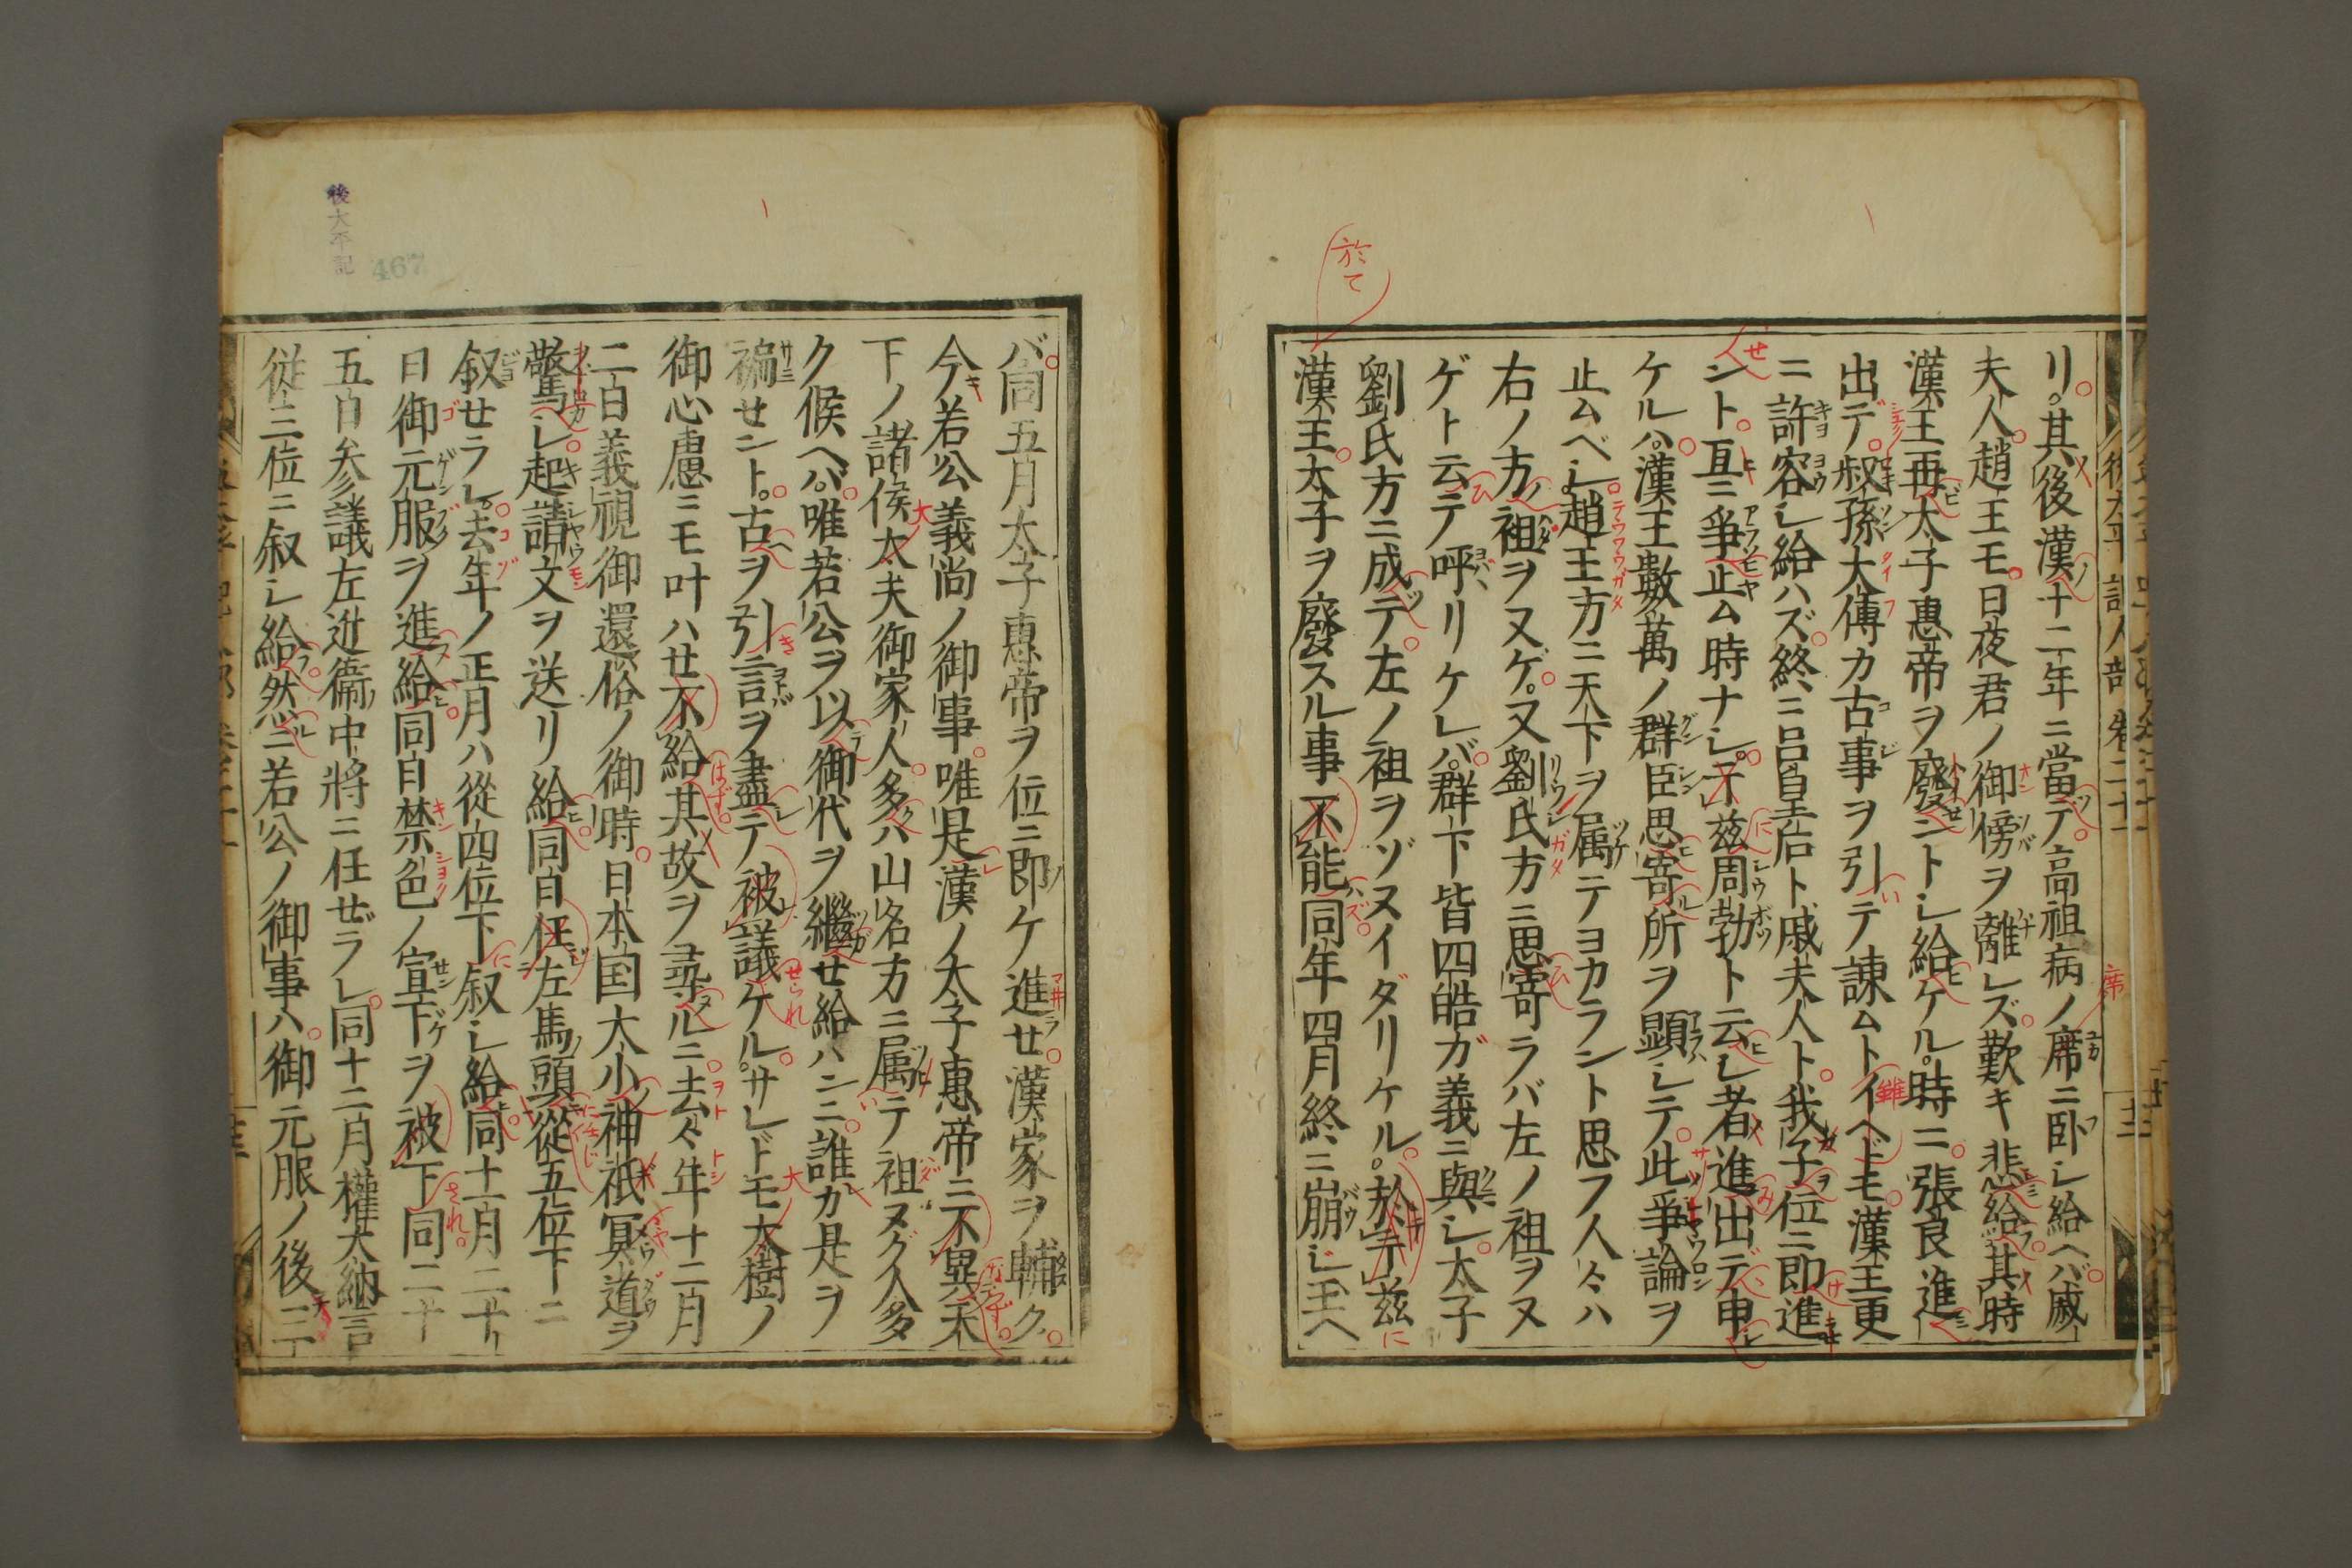 リ。其後漢十二年ニ當テ高祖病ノ席ニ卧シ給ヘバ戚
夫人趙王モ日夜君ノ御傍ヲ離レズ歎キ悲給其時
漢王再太子惠帝ヲ廢ントシ給ケル。時ニ張良進
出デ叔孫大傳カ古事ヲ引テ諫ムトイヘドモ漢王更
ニ許容シ給ハズ終ニ呂皇后ト戚夫人ト我子位ニ即進
ント。互ニ爭止ム時ナシ。于茲周勃ト云シ者進出デ申
ケルハ漢王數萬ノ群臣思寄所ヲ顯シテ此爭論ヲ
止ムベシ趙王方ニ天下ヲ属テヨカラント思フ人々ハ
右ノ方ノ祖ヲヌゲ。又劉氏方ニ思寄ラバ左ノ祖ヲヌ
ゲト云テ呼リケレバ。群下皆四皓ガ義ニ與シ太子
劉氏方ニ成テ左ノ祖ヲゾヌイダリケル。於于茲
漢王太子ヲ廢スル事不能同年四月終ニ崩ジ玉ヘ
バ同五月太子惠帝ヲ位ニ即ケ進セ漢家ヲ輔ク
今若公義尚ノ御事唯是漢ノ太子惠帝ニ不異天
下ノ諸侯太夫御家人多ハ山名方ニ属テ祖ヌグ人多
ク候ヘバ唯若公ヲ以御代ヲ繼セ給ハンニ誰カ是ヲ
褊セント。古ヲ引言ヲ盡テ被議ケル。サレドモ太樹ノ
御心慮ニモ叶ハセ不給其故ヲ尋ルニ去々年十二月
二日義視御還俗ノ御時日本国大小神祇冥道ヲ
驚シ起請文ヲ送リ給同日任左馬頭從五位下ニ
叙セラレ去年ノ正月ハ從四位下叙シ給同十一月二十
日御元服ヲ進給同日禁色ノ宣下ヲ被下同二十
五日参議左近衞中將ニ任ゼラレ同十二月權大納言
従三位ニ叙シ給然ニ若公ノ御事ハ御元服ノ後三
後太平記
467